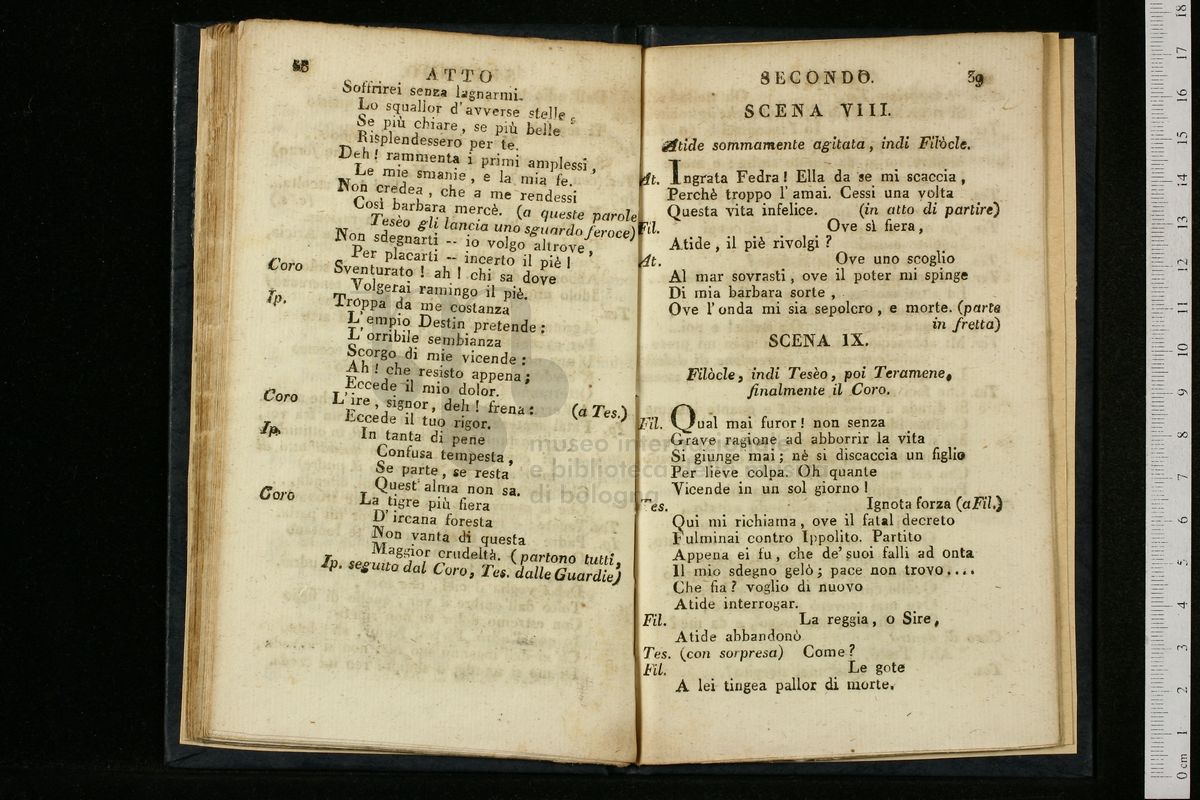 38
ATTO
Soffrirei senza lagnarmi.
Lo squallor d'avverse stelle,
Se più chiare, se più belle
Risplendessero per te.
Deh! rammenta i primi amplessi,
Le mie smanie, e la mia fe.
Non credea, che a me rendessi
Così barbara mercè. (a queste parole
Tesèo gli lancia uno sguardo feroce)
Non sdegnarti -- io volgo altrove,
Per placarti -- incerto il piè!
Coro Sventurato! ah! chi sa dove
Volgerai ramingo il piè.
Ip. Troppa da me costanza
L'empio Destin pretende:
L'orribile sembianza
Scorgo di mie vicende:
Ah! che resisto appena;
Eccede il mio dolor.
Coro L'ire, signor, deh! frena: (a Tes.)
Eccede il tuo rigor.
Ip. In tanta di pene
Confusa tempesta,
Se parte, se resta
Quest'alma non sa.
Coro La tigre più fiera
D'ircana foresta
Non vanta di questa
Maggior crudeltà. (partono tutti,
Ip. seguito dal Coro, Tes. dalle Guardie)
SECONDO. 39
SCENA VIII.
Atide sommamente agitata, indi Filòcle.
At. Ingrata Fedra! Ella da se mi scaccia,
Perchè troppo l'amai. Cessi una volta
Questa vita infelice. (in atto di partire)
Fil. Ove sì fiera,
Atide, il piè rivolgi?
At. Ove uno scoglio
Al mar sovrasti, ove il poter mi spinge
Di mia barbara sorte,
Ove l'onda mi sia sepolcro, e morte. (parte
in fretta)
SCENA IX.
Filòcle, indi Tesèo, poi Teramene,
finalmente il Coro.
Fil. Qual mai furor! non senza
Grave ragione ad abborrir la vita
Si giunge mai; nè si discaccia un figlio
Per lieve colpa. Oh quante
Vicende in un sol giorno!
Tes. Ignota forza (a Fil.)
Qui mi richiama, ove il fatal decreto
Fulminai contro Ippolito. Partito
Appena ei fu, che de' suoi falli ad onta
Il mio sdegno gelò; pace non trovo....
Che fia? voglio di nuovo
Atide interrogar.
Fil. La reggia, o Sire,
Atide abbandonò
Tes. (con sorpresa) Come?
Fil. Le gote
A lei tingea pallor di morte.
museo inter
e biblioteca
di bologna
0 cm 1 2 3 4 5 6 7 8 9 10 11 12 13 14 15 16 17 18